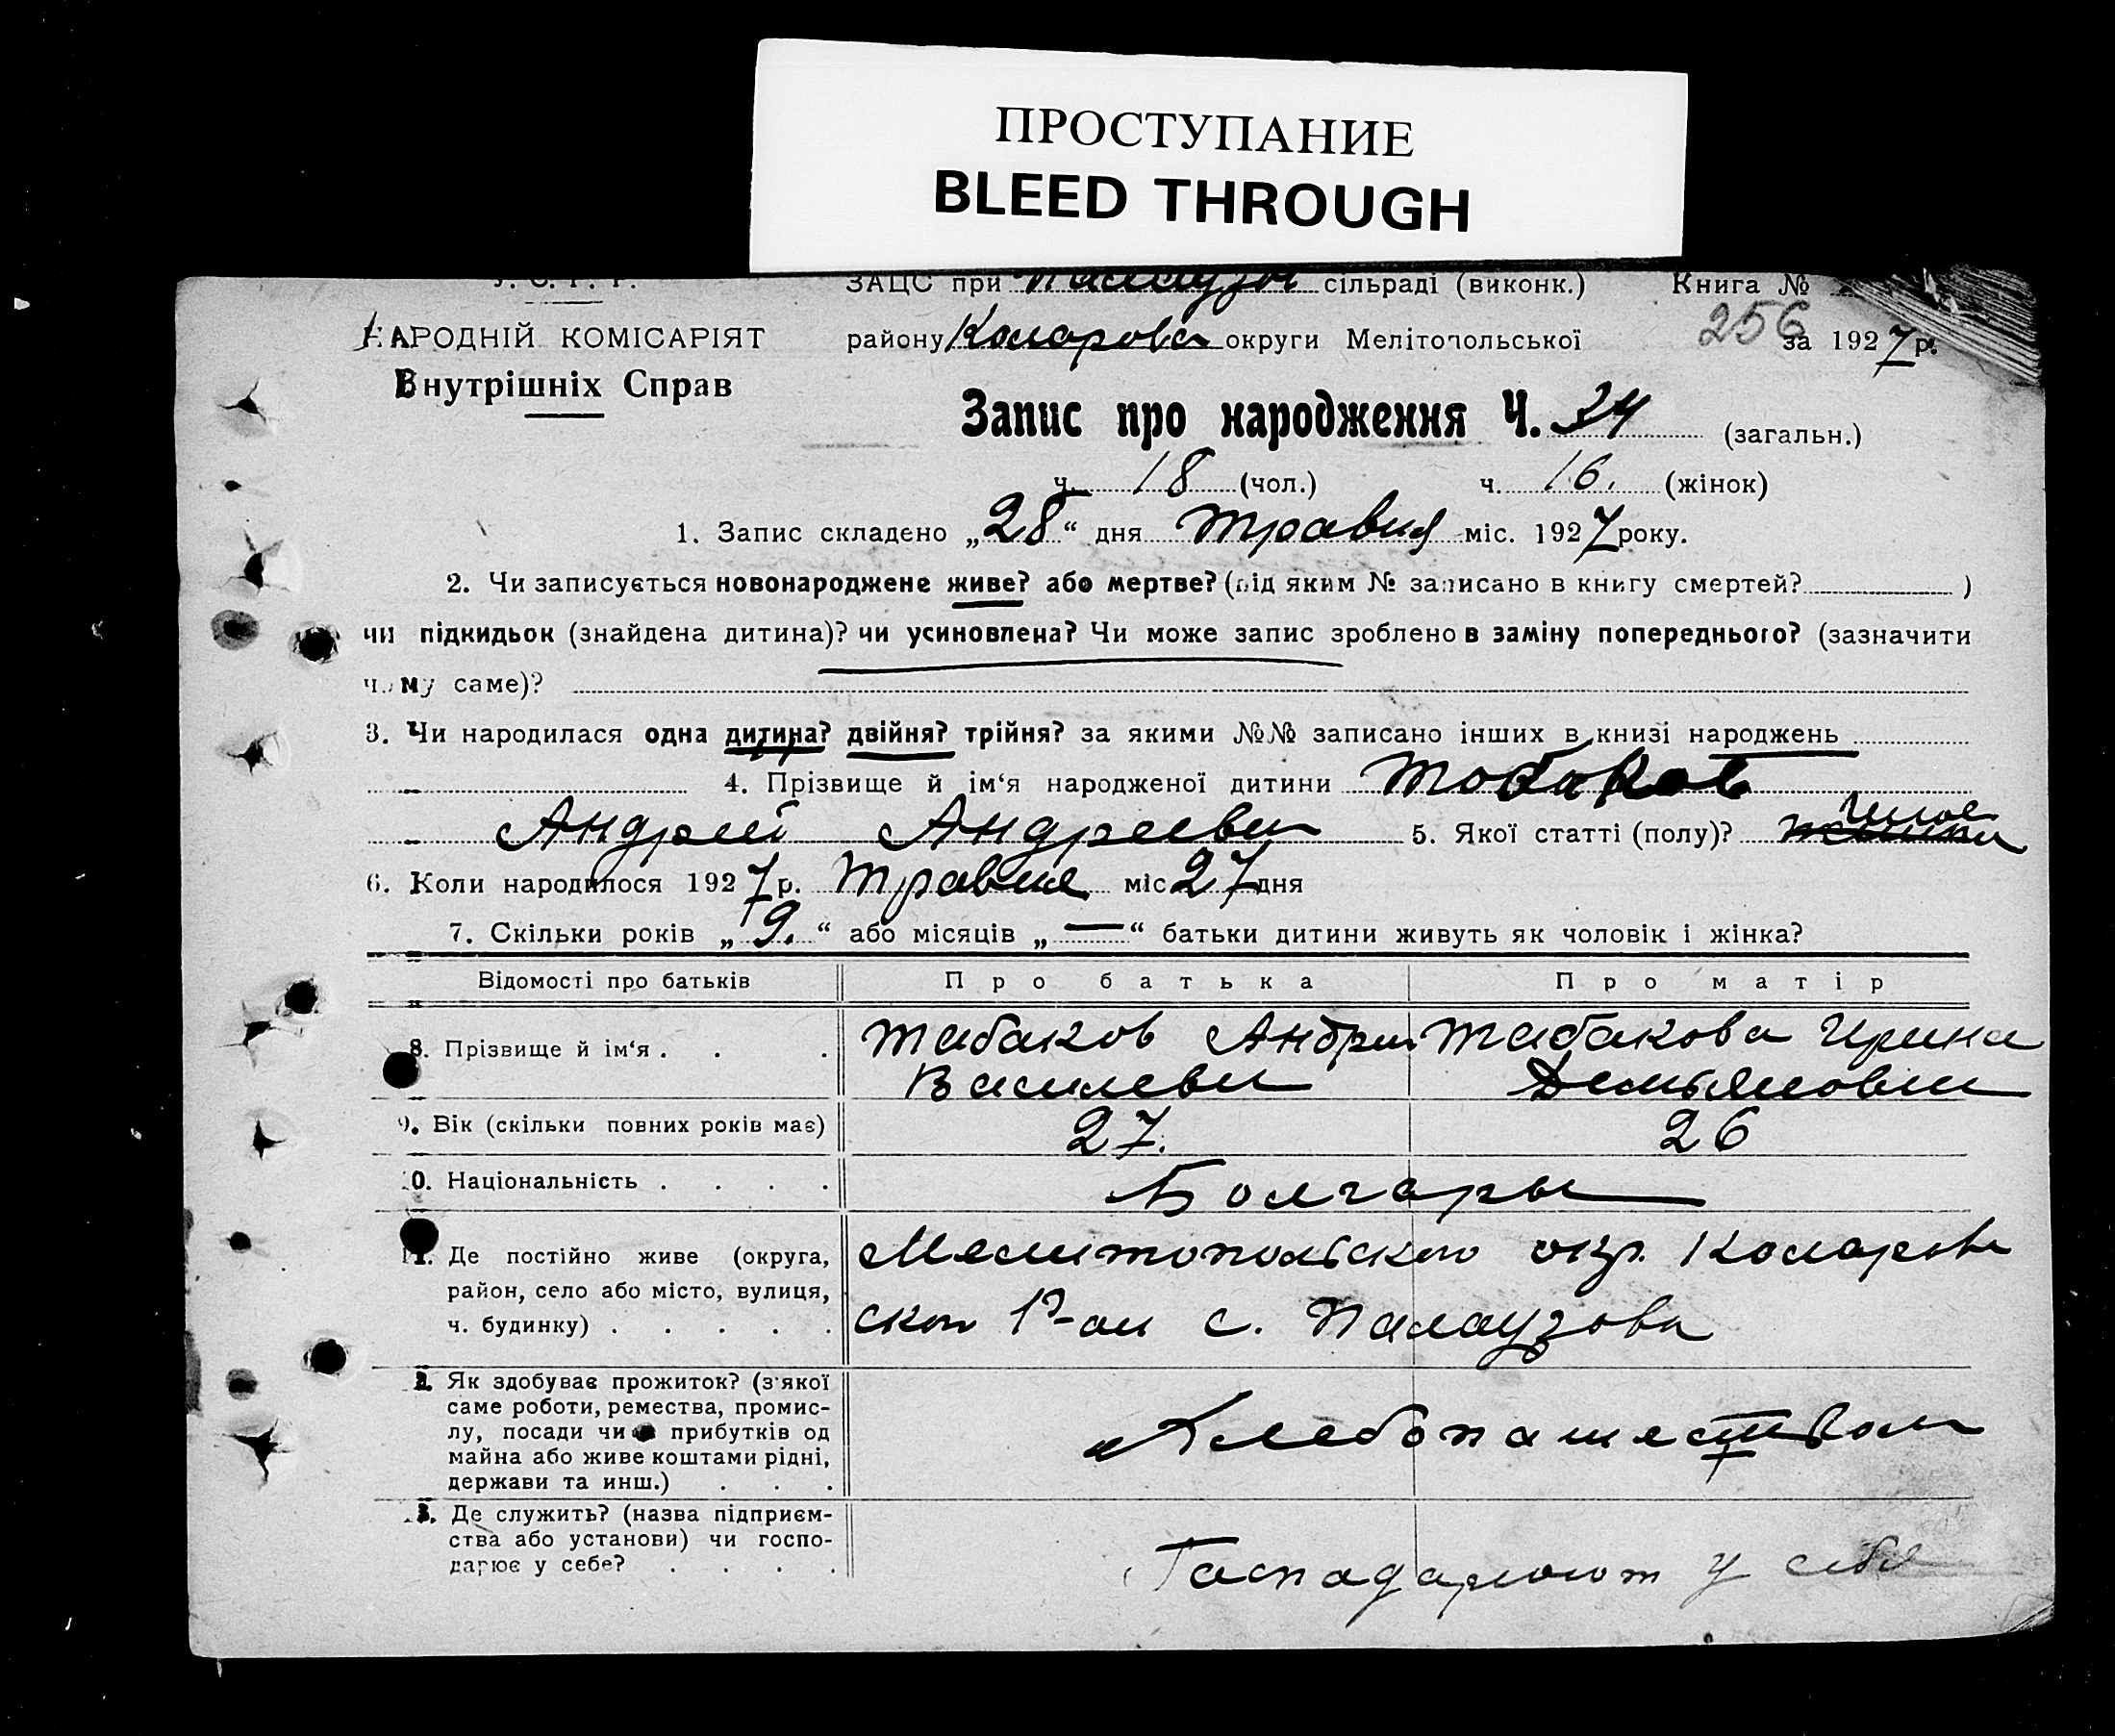 ПРОСТУПАНИЕ
BLEED THROUGH
У. С. Р. Р. ЗАЦС при сільраді (виконк.) Книга №
НАРОДНІЙ КОМІСАРІЯТ району Коларова округи Мелітопольської 256 за 1927 р.
Внутрішніх Справ
Запис про народження Ч. 34 (загальн.)
ч. 18 (чол.) ч. 16. (жінок)
1. Запис складено „28“ дня травня міс. 1927 року.
2. Чи записується новонароджене живе? або мертве? (під яким № записано в книгу смертей? )
чи підкидьок (знайдена дитина)? чи усиновлена? Чи може запис зроблено в заміну попереднього? (зазначити
чому саме)?
3. Чи народилася одна дитина? двійня? трійня? за якими №№ записано інших в книзі народжень
4. Прізвище й ім‘я народженої дитини Тобаков
Андрей Андрееви 5. Якої статті (полу)?
6. Коли народилося 1927 р. травня міс 27 дня
7. Скільки років „9.“ або місяців „—“ батьки дитини живуть як чоловік і жінка?
Відомості про батьків Про батька Про матір
8. Прізвище й ім‘я . . . Табаков Андрей Табакова Ирина
Василеви Демьяновна
9. Вік (скільки повних років має) 27. 26
10. Національність . . . . Болгары
11. Де постійно живе (округа, Мелитопольского окр. Коларов
район, село або місто, вулиця, ског Р-на с. Палаузова
ч. будинку) . . . . .
12. Як здобуває прожиток? (з якої
саме роботи, ремества, промис-
лу, посади чи з прибутків од Хлебопашеством
майна або живе коштами рідні,
держави та инш.) . . .
13. Де служить? (назва підприєм-
ства або установи) чи госпо- Гаспадарюют у себе
дарює у себе? . . . .